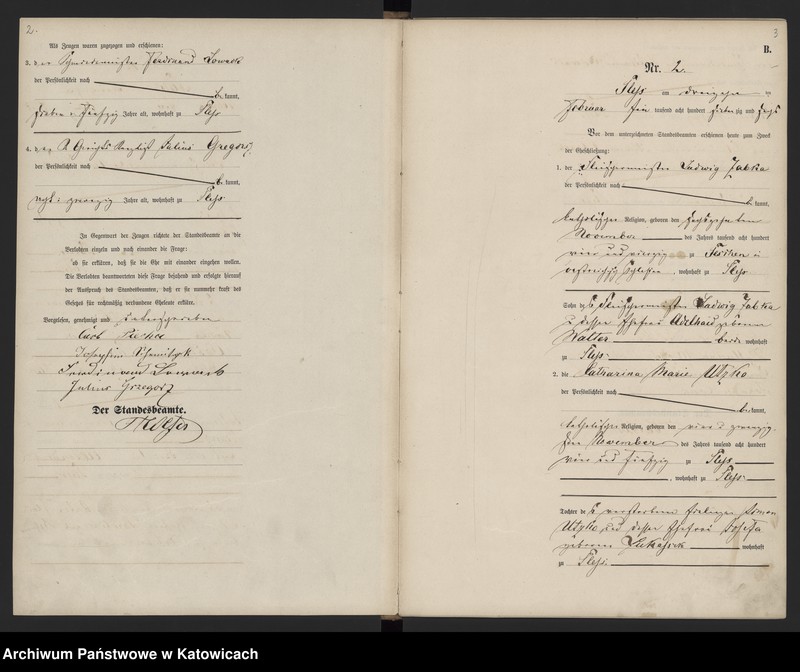 2.
Als Zeugen waren zugezogen und erschienen:
3. der Schmiedemeister Ferdinand Loweck
der Persönlichkeit nach
bekannt,
sieben u. fünfzig Jahre alt, wohnhaft zu Pleß
4. der Julius Gregorz
der Persönlichkeit nach
bekannt,
acht u. zwanzig Jahre alt, wohnhaft zu Pleß
In Gegenwart der Zeugen richtete der Standesbeamte an die
Verlobten einzeln und nach einander die Frage:
ob sie erklären, daß sie die Ehe mit einander eingehen wollen.
Die Verlobten beantworteten diese Frage bejahend und erfolgte hierauf
der Ausspruch des Standesbeamten, daß er sie nunmehr kraft des
Gesetzes für rechtmäßig verbundene Eheleute erkläre.
Vorgelesen, genehmigt und unterschrieben
Carl
Josephine
Ferdinand Loweck
Julius Gregorz
Der Standesbeamte.
3
B.
Nr. 2
Pleß am dreizehn ten
Februar Ein tausend acht hundert siebenzig und sechs
Vor dem unterzeichneten Standesbeamten erschienen heute zum Zweck
der Eheschließung:
1. der Fleischermeister Ludwig Zabka
der Persönlichkeit nach
bekannt,
katholischer Religion, geboren den sechszehnten
November des Jahres tausend acht hundert
vier und vierzig zu
oestreichisch Schlesien, wohnhaft zu Pleß
Sohn des Fleischermeister Ludwig Zabka
u. dessen Ehefrau Adelhaid geborene
Walter beide wohnhaft
zu Pleß
2. die Catharina Marie Utzko
der Persönlichkeit nach
bekannt,
katholischer Religion, geboren den vier u. zwanzig-
sten November des Jahres tausend acht hundert
vier und fünfzig zu Pleß
, wohnhaft zu Pleß
Tochter des verstorbenen Roman
Utzko und dessen Ehefrau Josefa
geborene wohnhaft
zu Pleß
Archiwum Państwowe w Katowicach